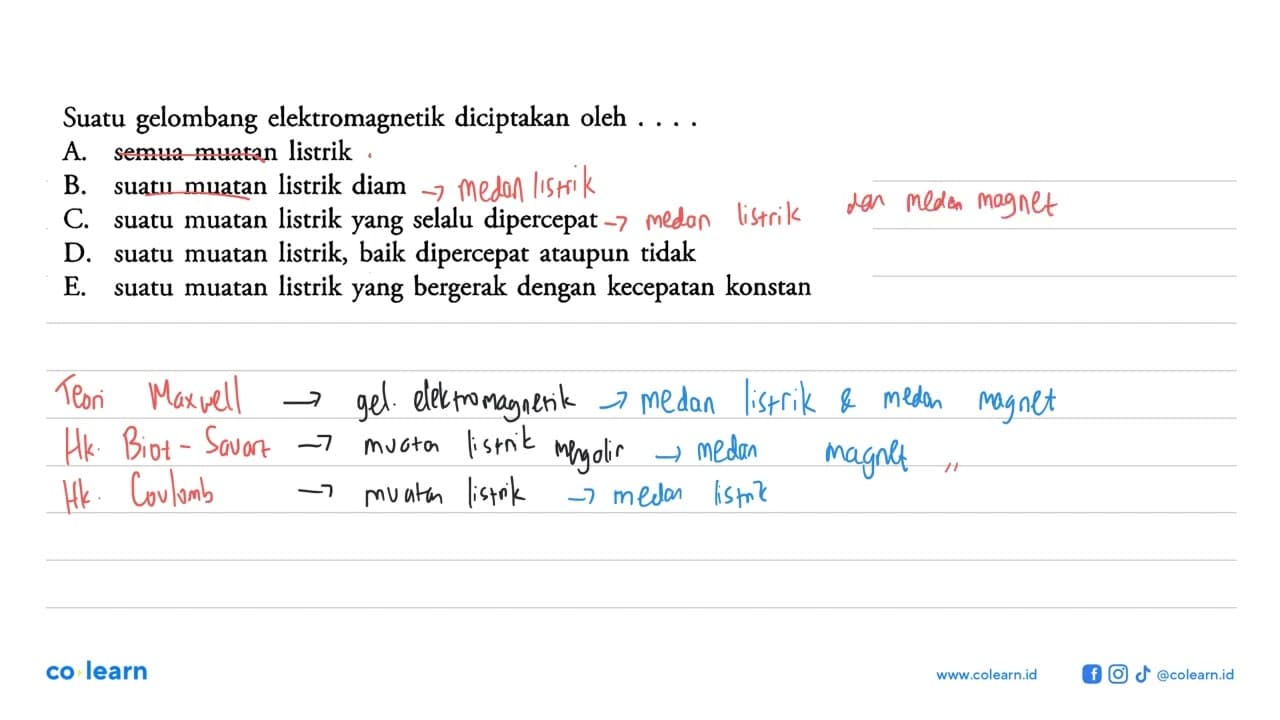 Suatu gelombang elektromagnetik diciptakan oleh . . . .
A. semua muatan listrik
B. suatu muatan listrik diam → medan listrik
C. suatu muatan listrik yang selalu dipercepat → medan listrik dan medan magnet
D. suatu muatan listrik, baik dipercepat ataupun tidak
E. suatu muatan listrik yang bergerak dengan kecepatan konstan
Teori Maxwell → gel. elektromagnetik → medan listrik & medan magnet
Hk. Biot - Savart → muatan listrik mengalir → medan magnet "
Hk. Coulomb → muatan listrik → medan listrik
co learn
www.colearn.id @colearn.id